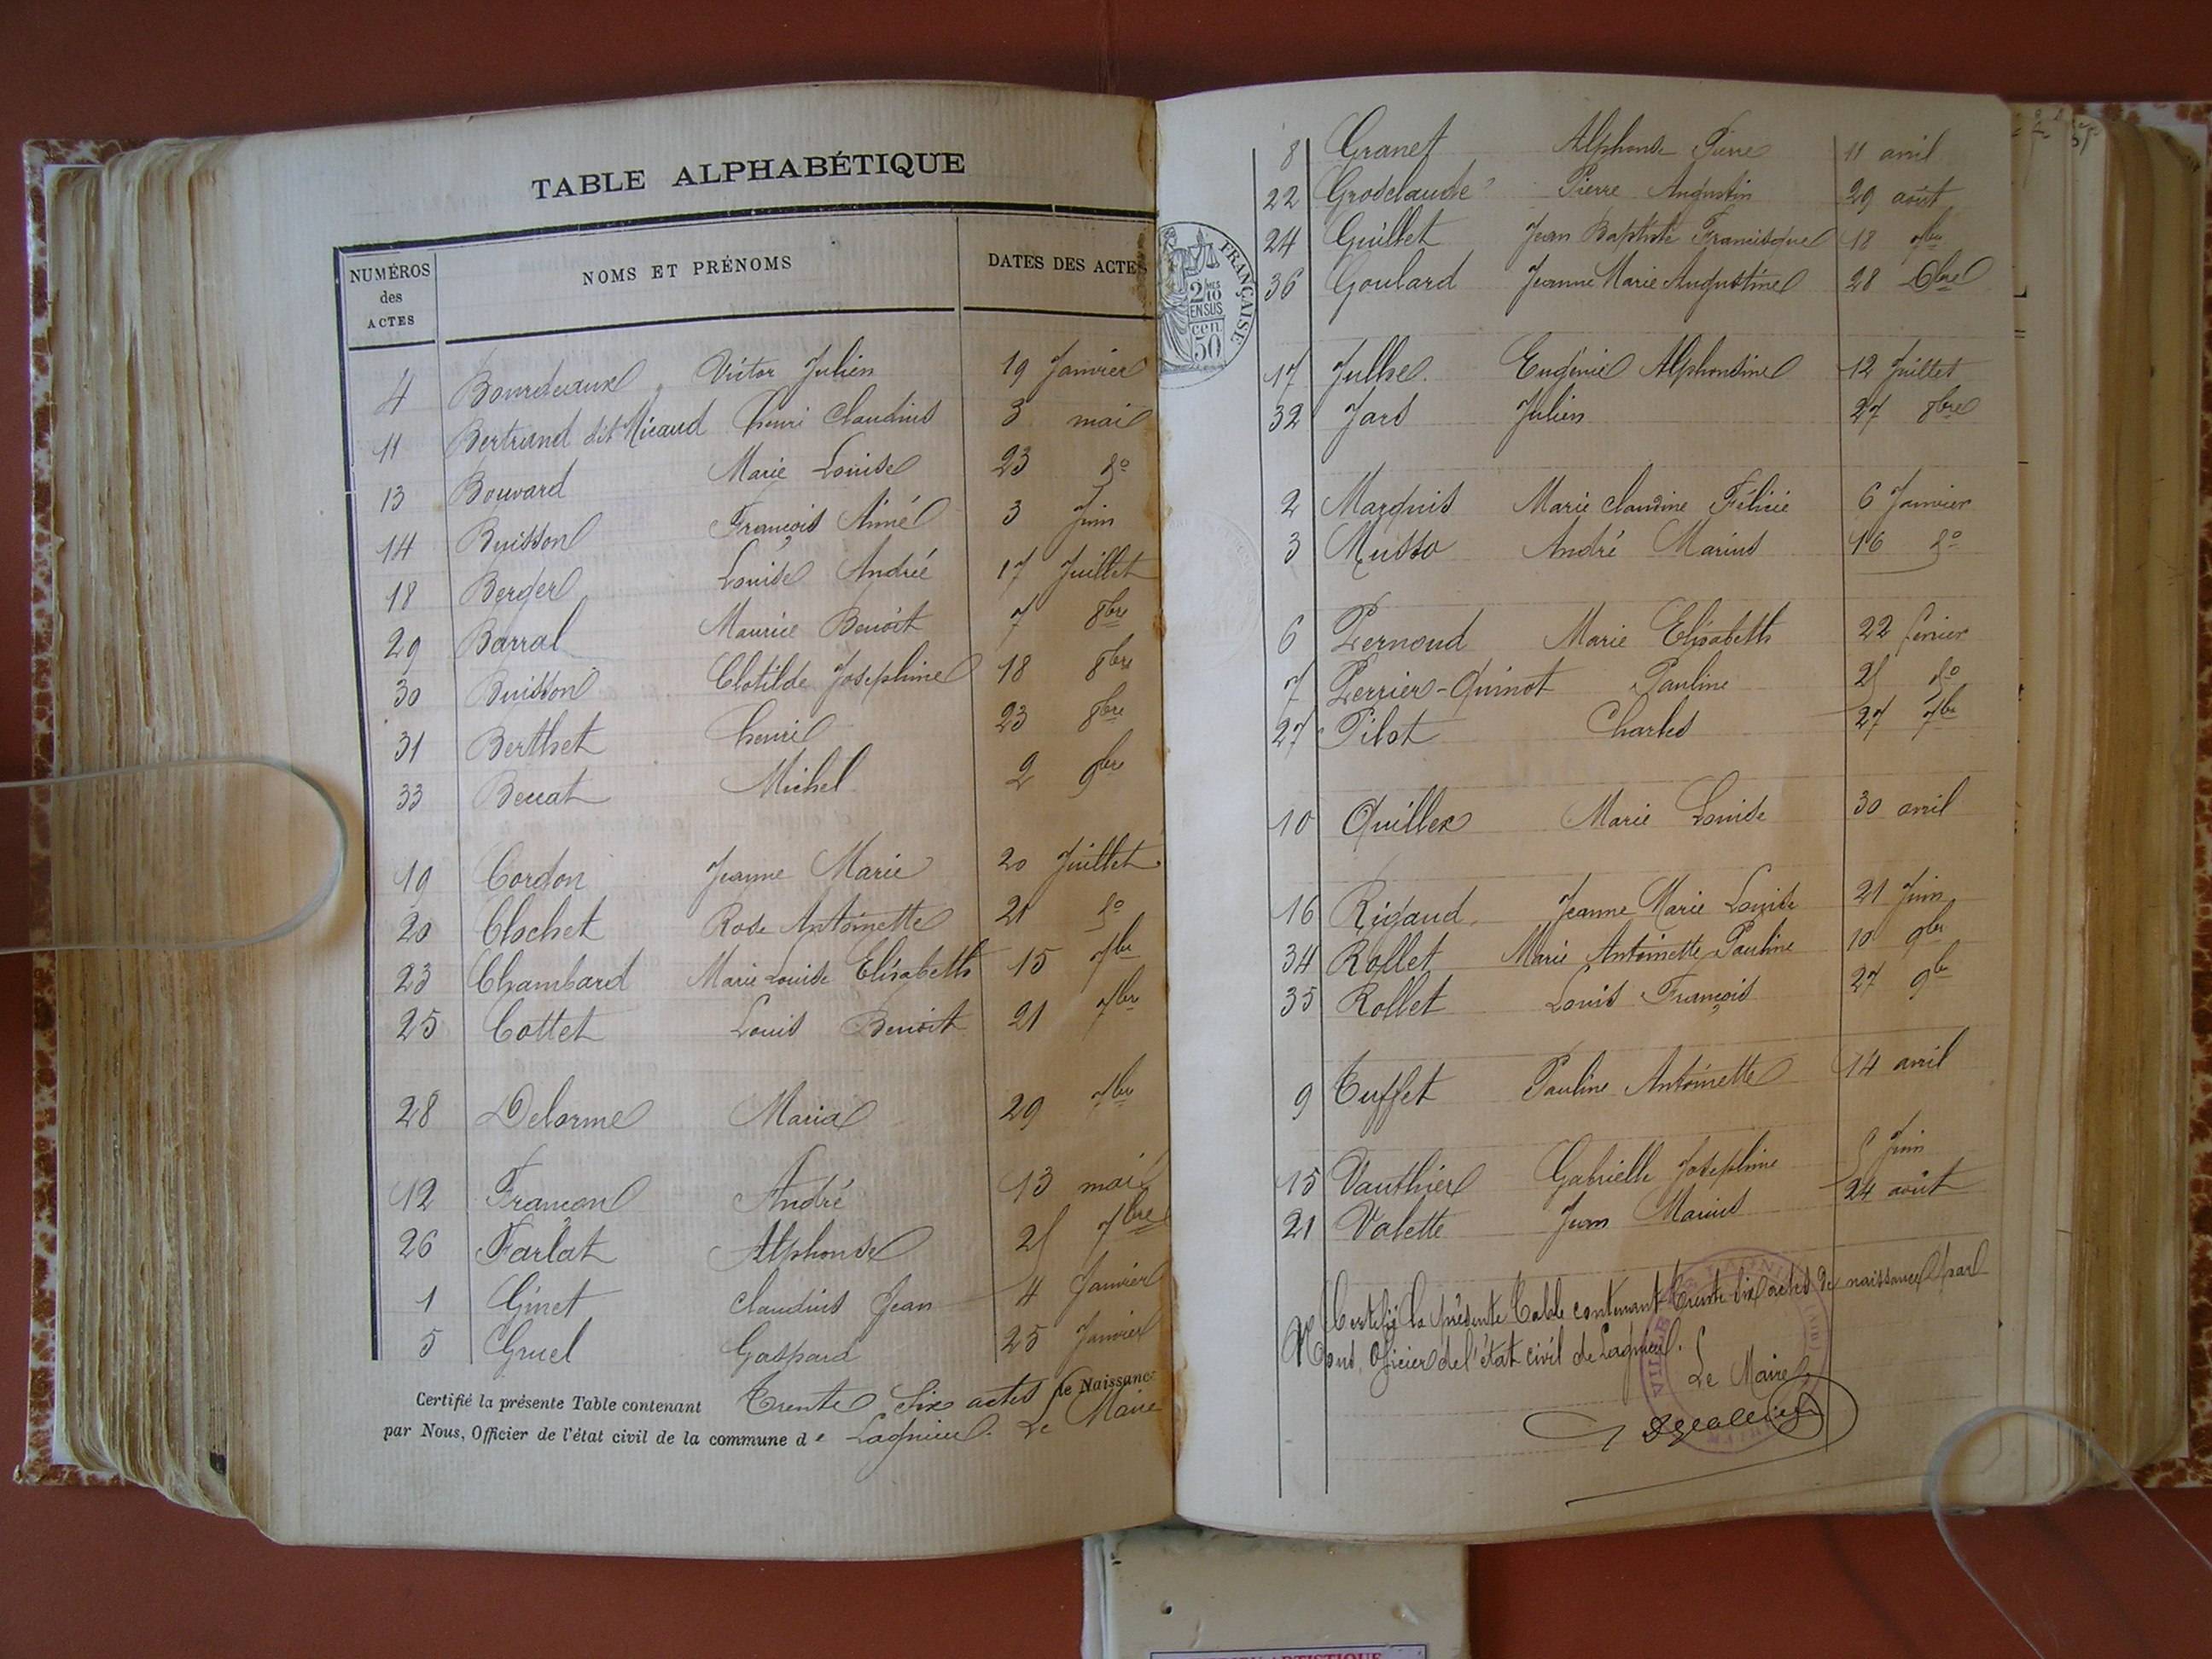 TABLE ALPHABÉTIQUE
NUMÉROS des ACTES NOMS ET PRÉNOMS DATES DES ACTES
4 Bourdeaux Victor Julien 19 Janvier
11 Bertrand dit Micaud henri Claudius 3 mai
13 Bouvard Marie Louise 23 do
14 Buisson François Aimé 3 Juin
18 Berger Louise Andrée 17 Juillet
29 Barral Maurice Benoit 7 8bre
30 Buisson Clotilde Josephine 18 8bre
31 Berthet henri 23 8bre
33 Michel 2 9bre
19 Cordon Jeanne Marie 20 Juillet
20 Clochet Rose Antoinette 21 do
23 Chambard Marie Louise Elisabeth 15 7bre
25 Cottet Louis Benoit 21 7bre
28 Delorme Maria 29 7bre
12 Françon André 13 mai
26 Farlat Alphonse 25 7bre
1 Ginet Claudius Jean 4 Janvier
5 Gruel Gaspard 25 Janvier
Certifié la présente Table contenant Trente Six actes de Naissance
par Nous, Officier de l'état civil de la commune de Lagnieu. Le Maire
FRANÇAISE
2/10 EN SUS
50 cen
8 Granet Alphonse Pierre 11 avril
22 Grosclaude Pierre Augustin 29 août
24 Guillet Jean Baptiste Francisque 18 7bre
36 Goulard Jeanne Marie Augustine 28 Xbre
17 Julhe Eugénie Alphonsine 12 Juillet
32 Jars Julien 27 8bre
2 Marquis Marie Claudine Félicie 6 Janvier
3 Musso André Marius 16 do
6 Pernoud Marie Elisabeth 22 février
7 Perrier-Quinot Pauline 25 do
27 Pilot Charles 27 7bre
10 Quiller Marie Louise 30 avril
16 Rigaud Jeanne Marie Louise 21 Juin
34 Rollet Marie Antoinette Pauline 10 9bre
35 Rollet Louis François 27 9bre
9 Tuffet Pauline Antoinette 14 avril
15 Vauthier Gabrielle Josephine 5 Juin
21 Valette Jean Marius 24 août
Certifié la présente Table contenant Trente Six actes de naissance par
Nous, Officier de l'état civil de Lagnieu.
Le Maire